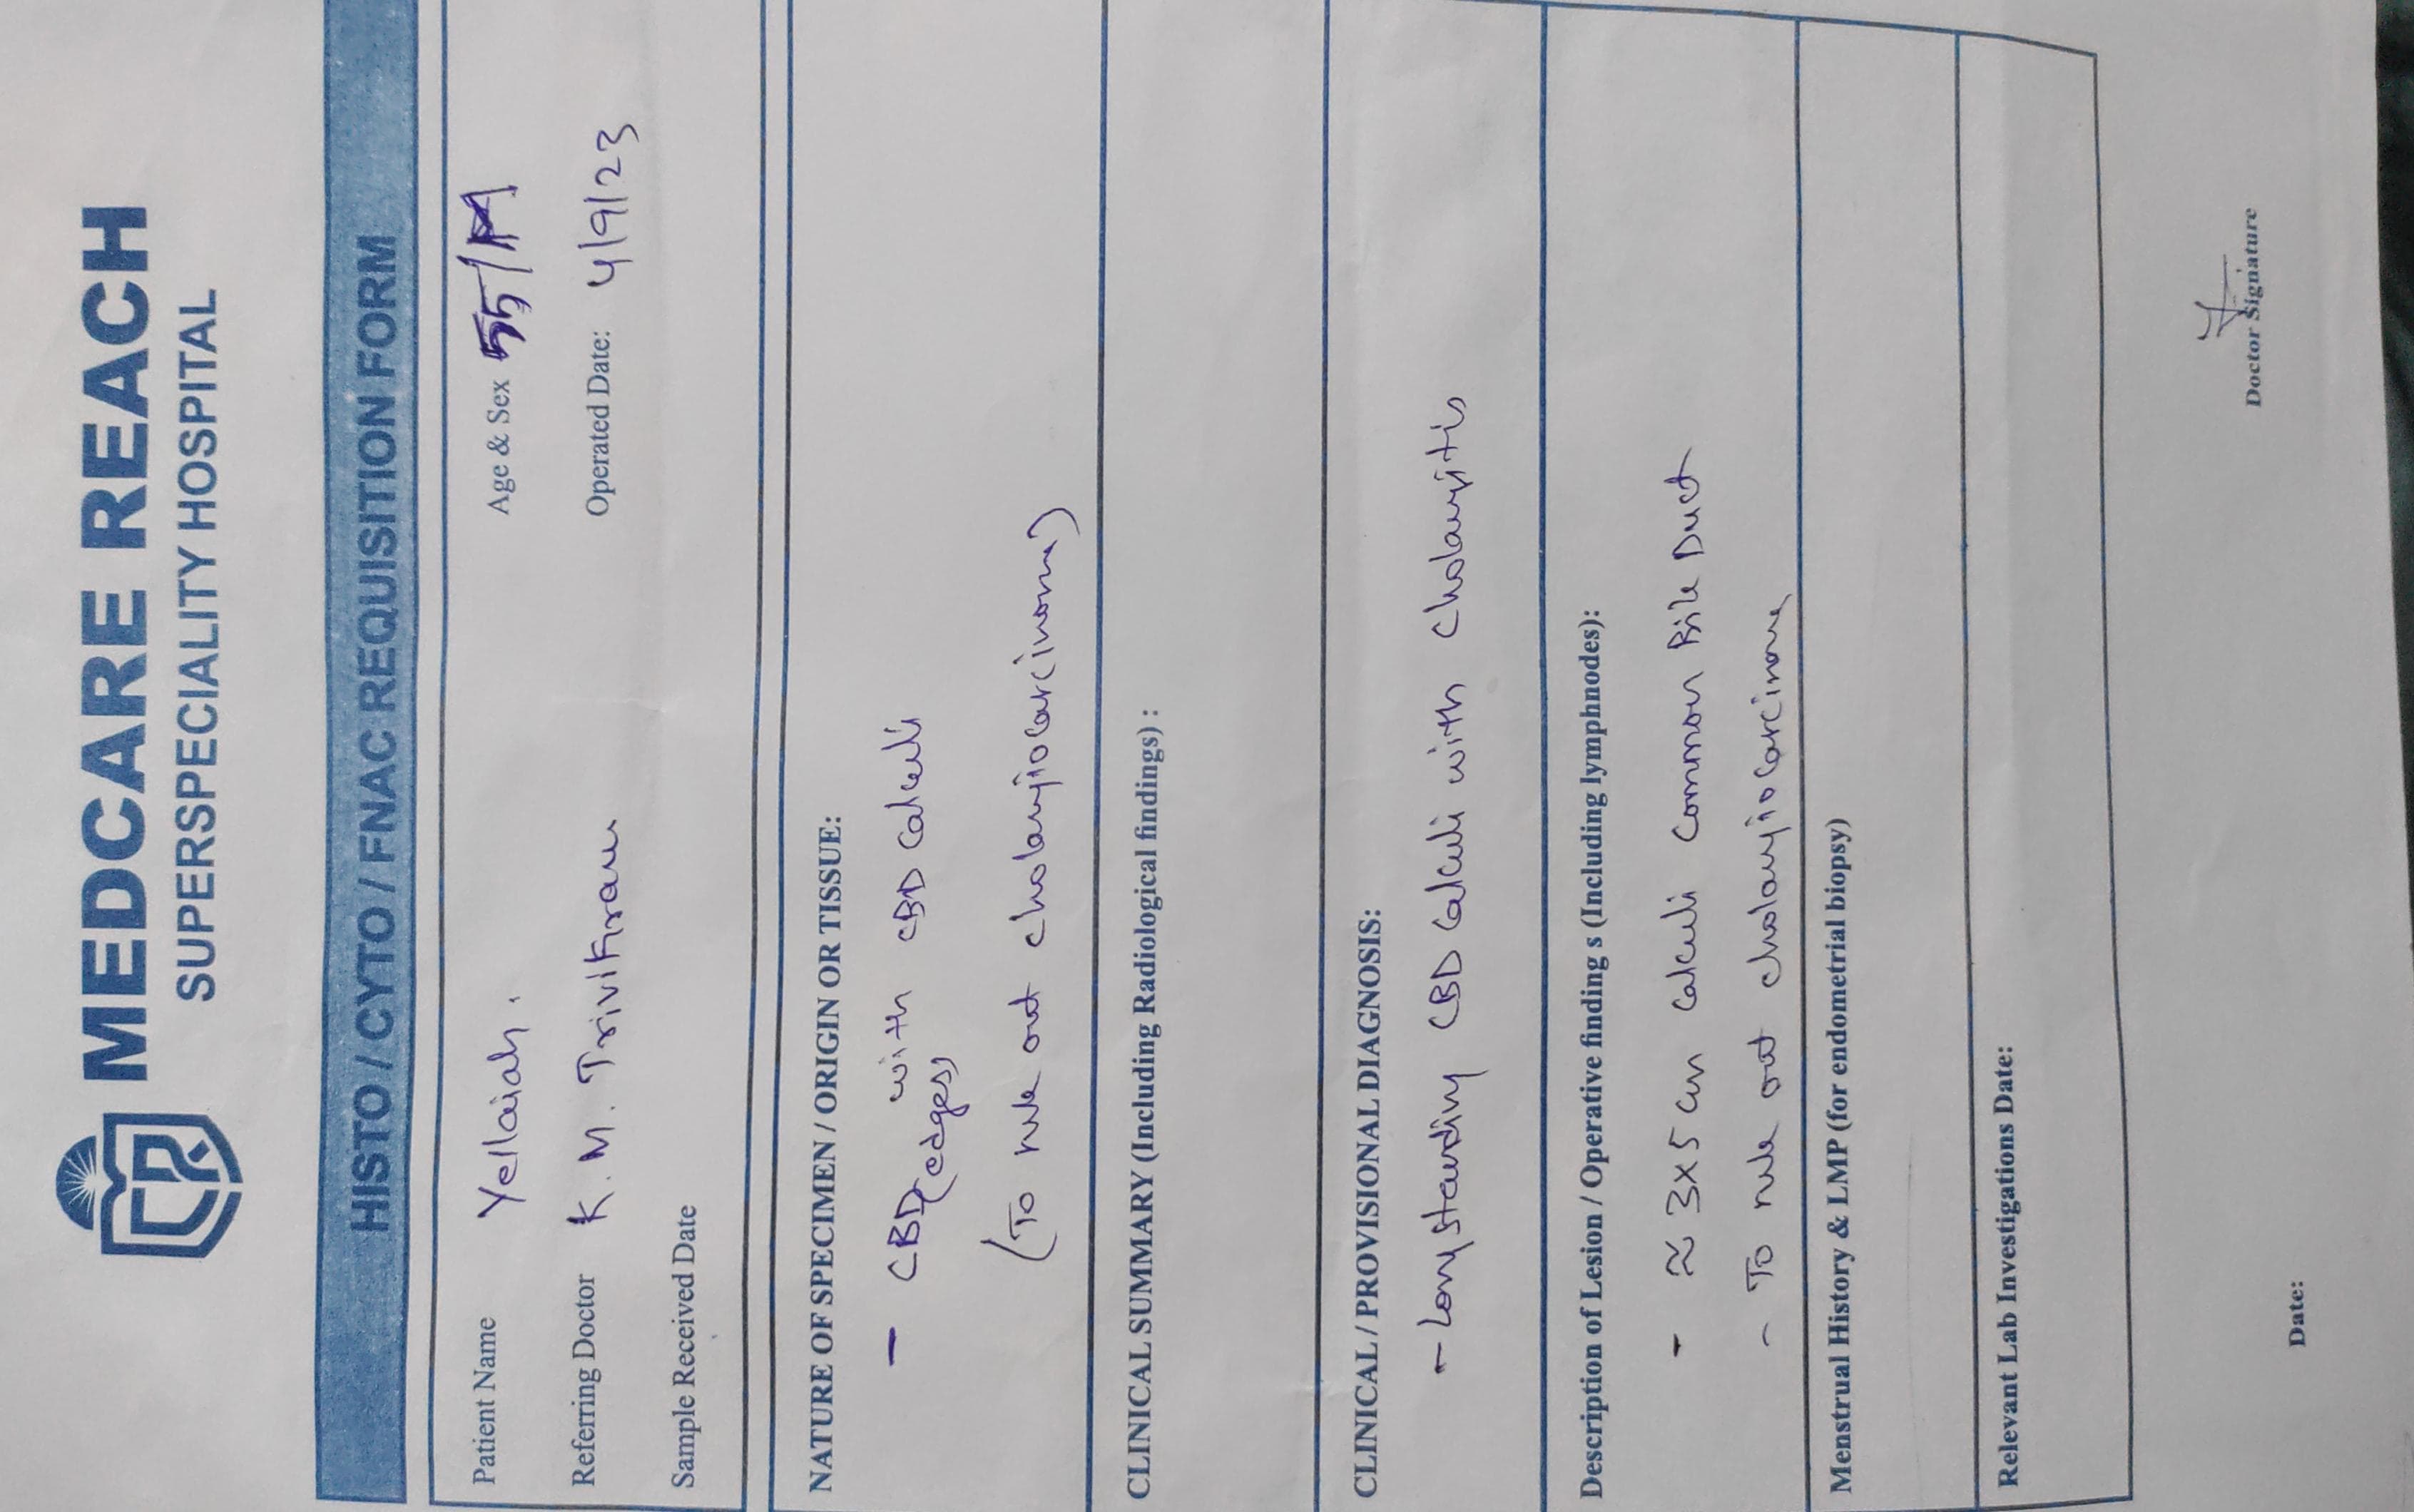 MEDCARE REACH
SUPERSPECIALITY HOSPITAL
HISTO / CYTO / FNAC REQUISITION FORM
Patient Name Yellaiah. Age & Sex 55/M
Referring Doctor K. M. Trivikram Operated Date: 4/9/23
Sample Received Date
NATURE OF SPECIMEN / ORIGIN OR TISSUE:
- CBD (edges) with CBD Calculi
(To rule out cholangiocarcinoma)
CLINICAL SUMMARY (Including Radiological findings) :
CLINICAL / PROVISIONAL DIAGNOSIS:
- Longstanding CBD Calculi with cholangitis
Description of Lesion / Operative finding s (Including lymphnodes):
- ≈ 3x5 cm calculi Common Bile Duct
- To rule out cholangiocarcinoma
Menstrual History & LMP (for endometrial biopsy)
Relevant Lab Investigations Date:
Doctor Signature
Date: